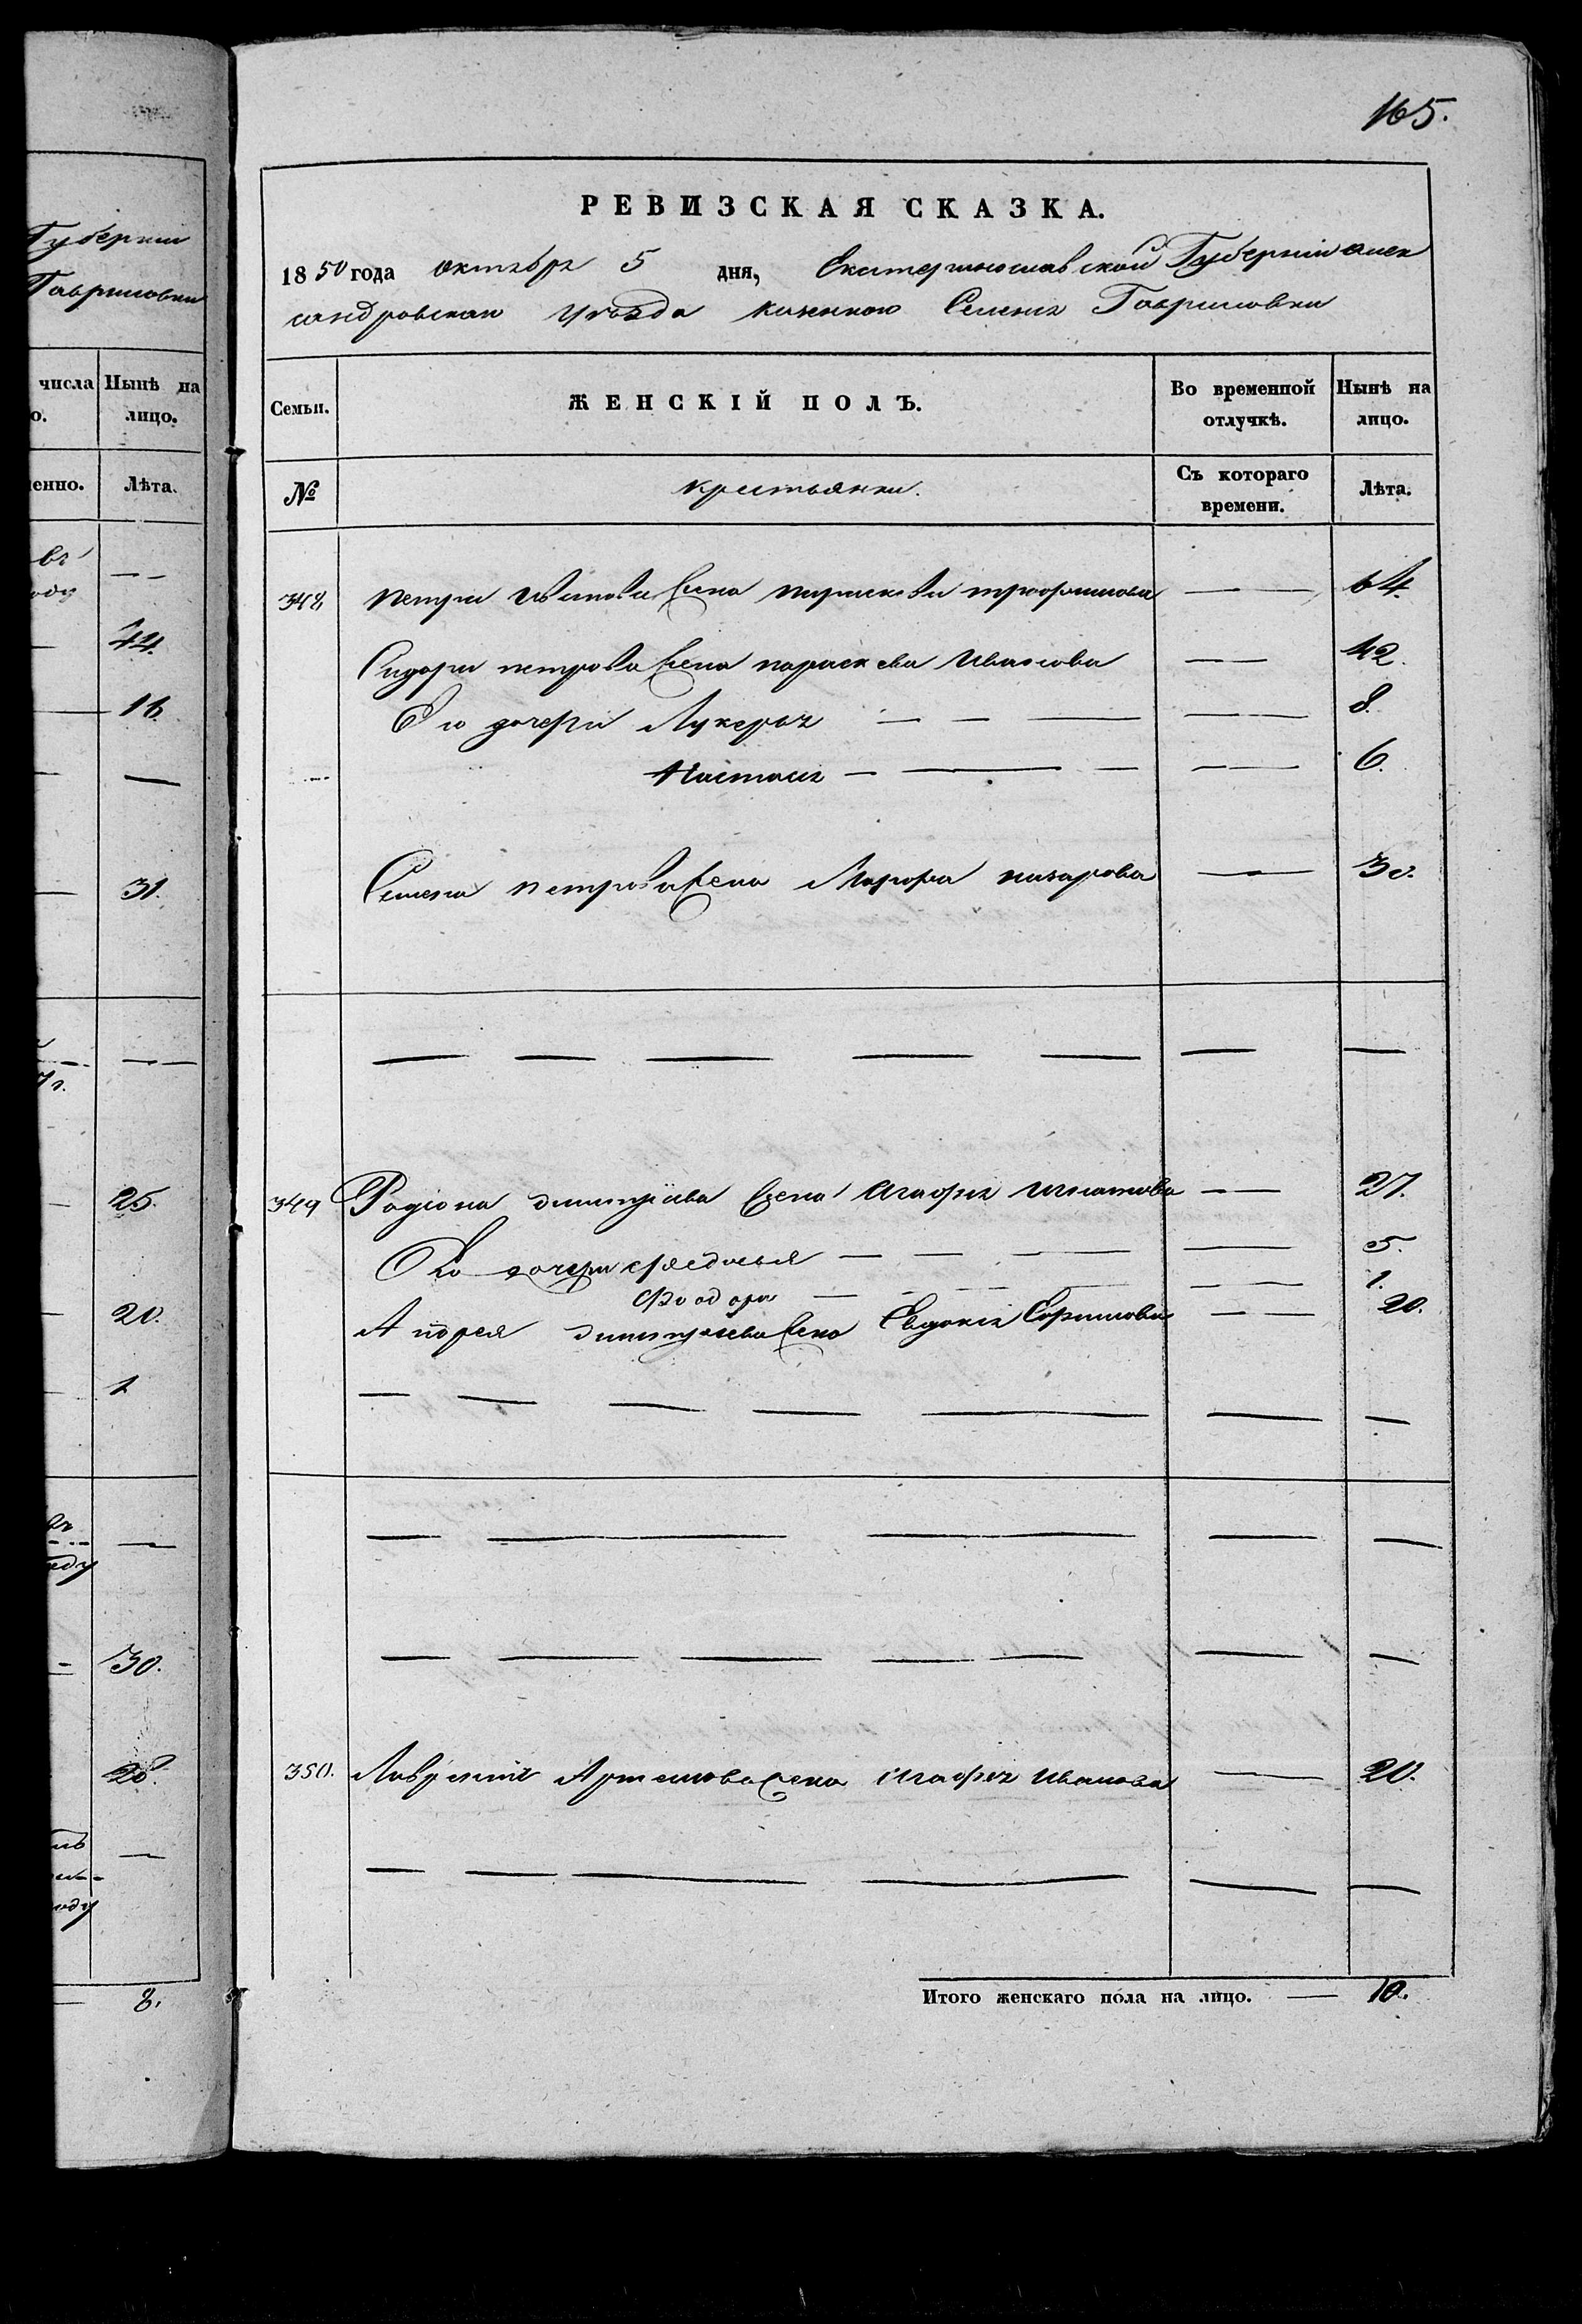 Губерніи
Гавриловки
числа Нынѣ на
о. лицо.
енно. Лѣта.
въ
оду
44.
16.
31.
7 г.
25.
20.
1
оду
30.
28.
оду
8.
165.
РЕВИЗСКАЯ СКАЗКА.
1850 года октября 5 дня, Екатеринославской Губерніи алек
сандровскаго уѣзда казенного Селенія Гавриловки
Семьи. ЖЕНСКІЙ ПОЛЪ. Во временной отлучкѣ. Нынѣ на лицо.
№ крестьянки. Съ котораго времени. Лѣта.
348 петра иванова жена параскева трофимова — — 64.
Сидора петрова жена параскева Иванова — — 42.
Его дочери Лукерья — — — — — 8.
Настасья — — — — — 6.
Семена петрова жена Марфа назарова — — 30.
— — — — — — —
349 Родіона дмитріева жена Агафья игнатова — — 27.
Его дочери федосья — — — — 5.
Феодора — — — — — — 1.
Андрея дмитріева жена Евдокія Ефимова — — 20.
— — — — — — —
— — — — —
— — — — — — —
350. Лаврентія Артемова жена Агафья иванова — 20.
— — — — — —
Итого женскаго пола на лицо. — 10.